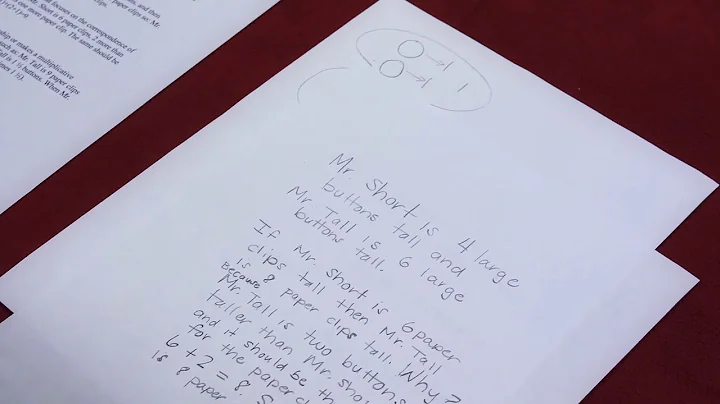 focuses on the correspondence of
Short is 6 paper clips, 2 more than
one more paper clip. The same should be
or makes a multiplicative
such as: Mr. Tall is 9 paper clips
Tall is 1 ½ buttons. When Mr.
times 1 ½).
paper clips so: Mr.
clips.
Mr. Short is 4 large
buttons tall and
Mr. Tall is 6 large
buttons tall.
If Mr. Short is 6 paper
clips tall then Mr. Tall
is 8 paper clips tall. Why?
Because Mr. Tall is two buttons
taller than Mr. Sho
and it should be th
for the paper cl
6 + 2 = 8. S
is 8 paper